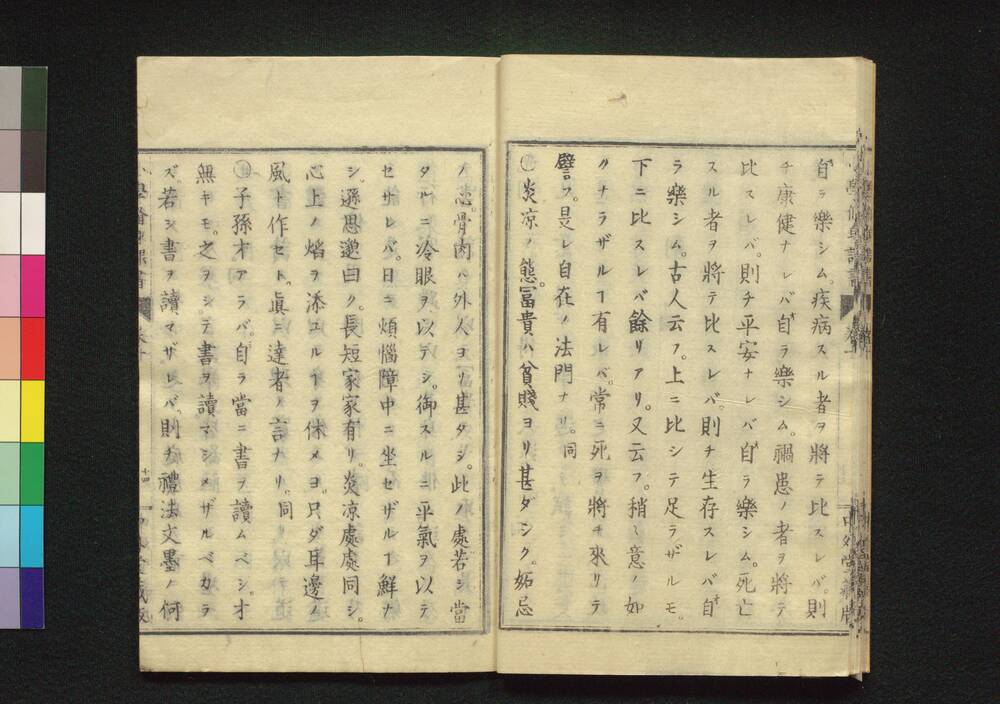 自ラ樂シム。疾病スル者ヲ將テ比スレバ。則
チ康健ナレバ自ラ樂シム。禍患ノ者ヲ將テ
比スレバ。則チ平安ナレバ自ラ樂シム。死亡
スル者ヲ將テ比スレバ。則チ生存スレバ自
ラ樂シム。古人云フ。上ニ比シテ足ラザルモ。
下ニ比スレバ餘リアリ。又云フ。稍〻意ノ如
クナラザルヿ有レバ。常ニ死ヲ將チ來リテ
譬フ。是レ自在ノ法門ナリ。同
炎凉ノ態。冨貴ハ貧賤ヨリ甚ダシク。妬忌
ノ。骨肉ハ外人ヨリ甚タシ。此ノ處若シ當
タルニ冷眼ヲ以テシ。御スルニ平氣ヲ以テ
セサレバ。日ニ煩惱障中ニ坐セザルヿ鮮ナ
シ。遜思邈曰ク。長短家家有リ。炎凉處處同シ。
心上ノ焰ヲ添エルヿヲ休メヨ。只ダ耳邊ノ
風ト作セト。眞ニ達者ノ言ナリ。同
子孫才アラバ。自ラ當ニ書ヲ讀ムベシ。才
無キモ。之ヲシテ書ヲ讀マシメザルベカラ
ズ。若シ書ヲ讀マザレバ。則チ禮法文墨ノ何